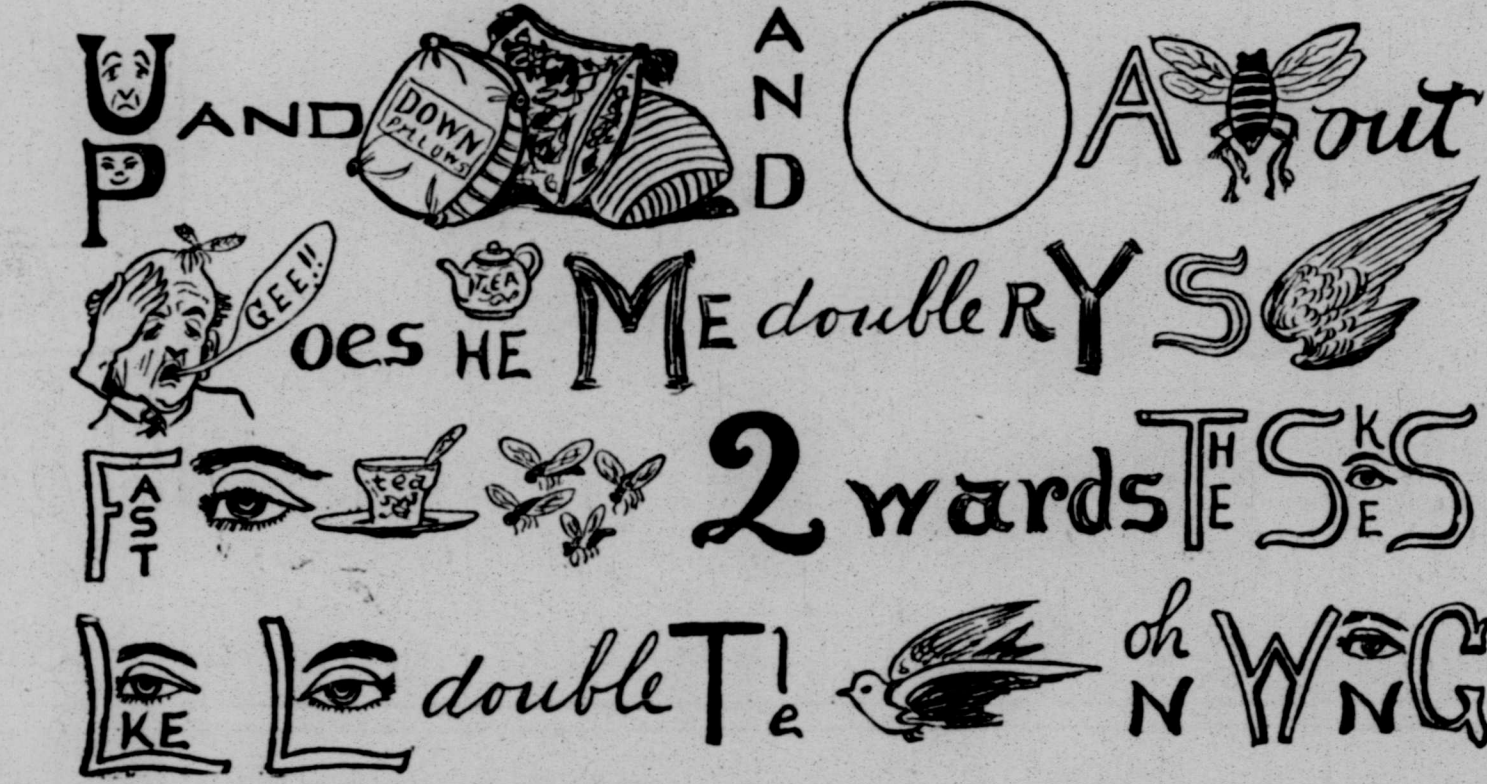 UP AND DOWN PILLOWS AND A out
GEE!! oes TEA HE ME double RY S
FAST tea 2 wards THE SKES
LKE L double Tle oh N WNG